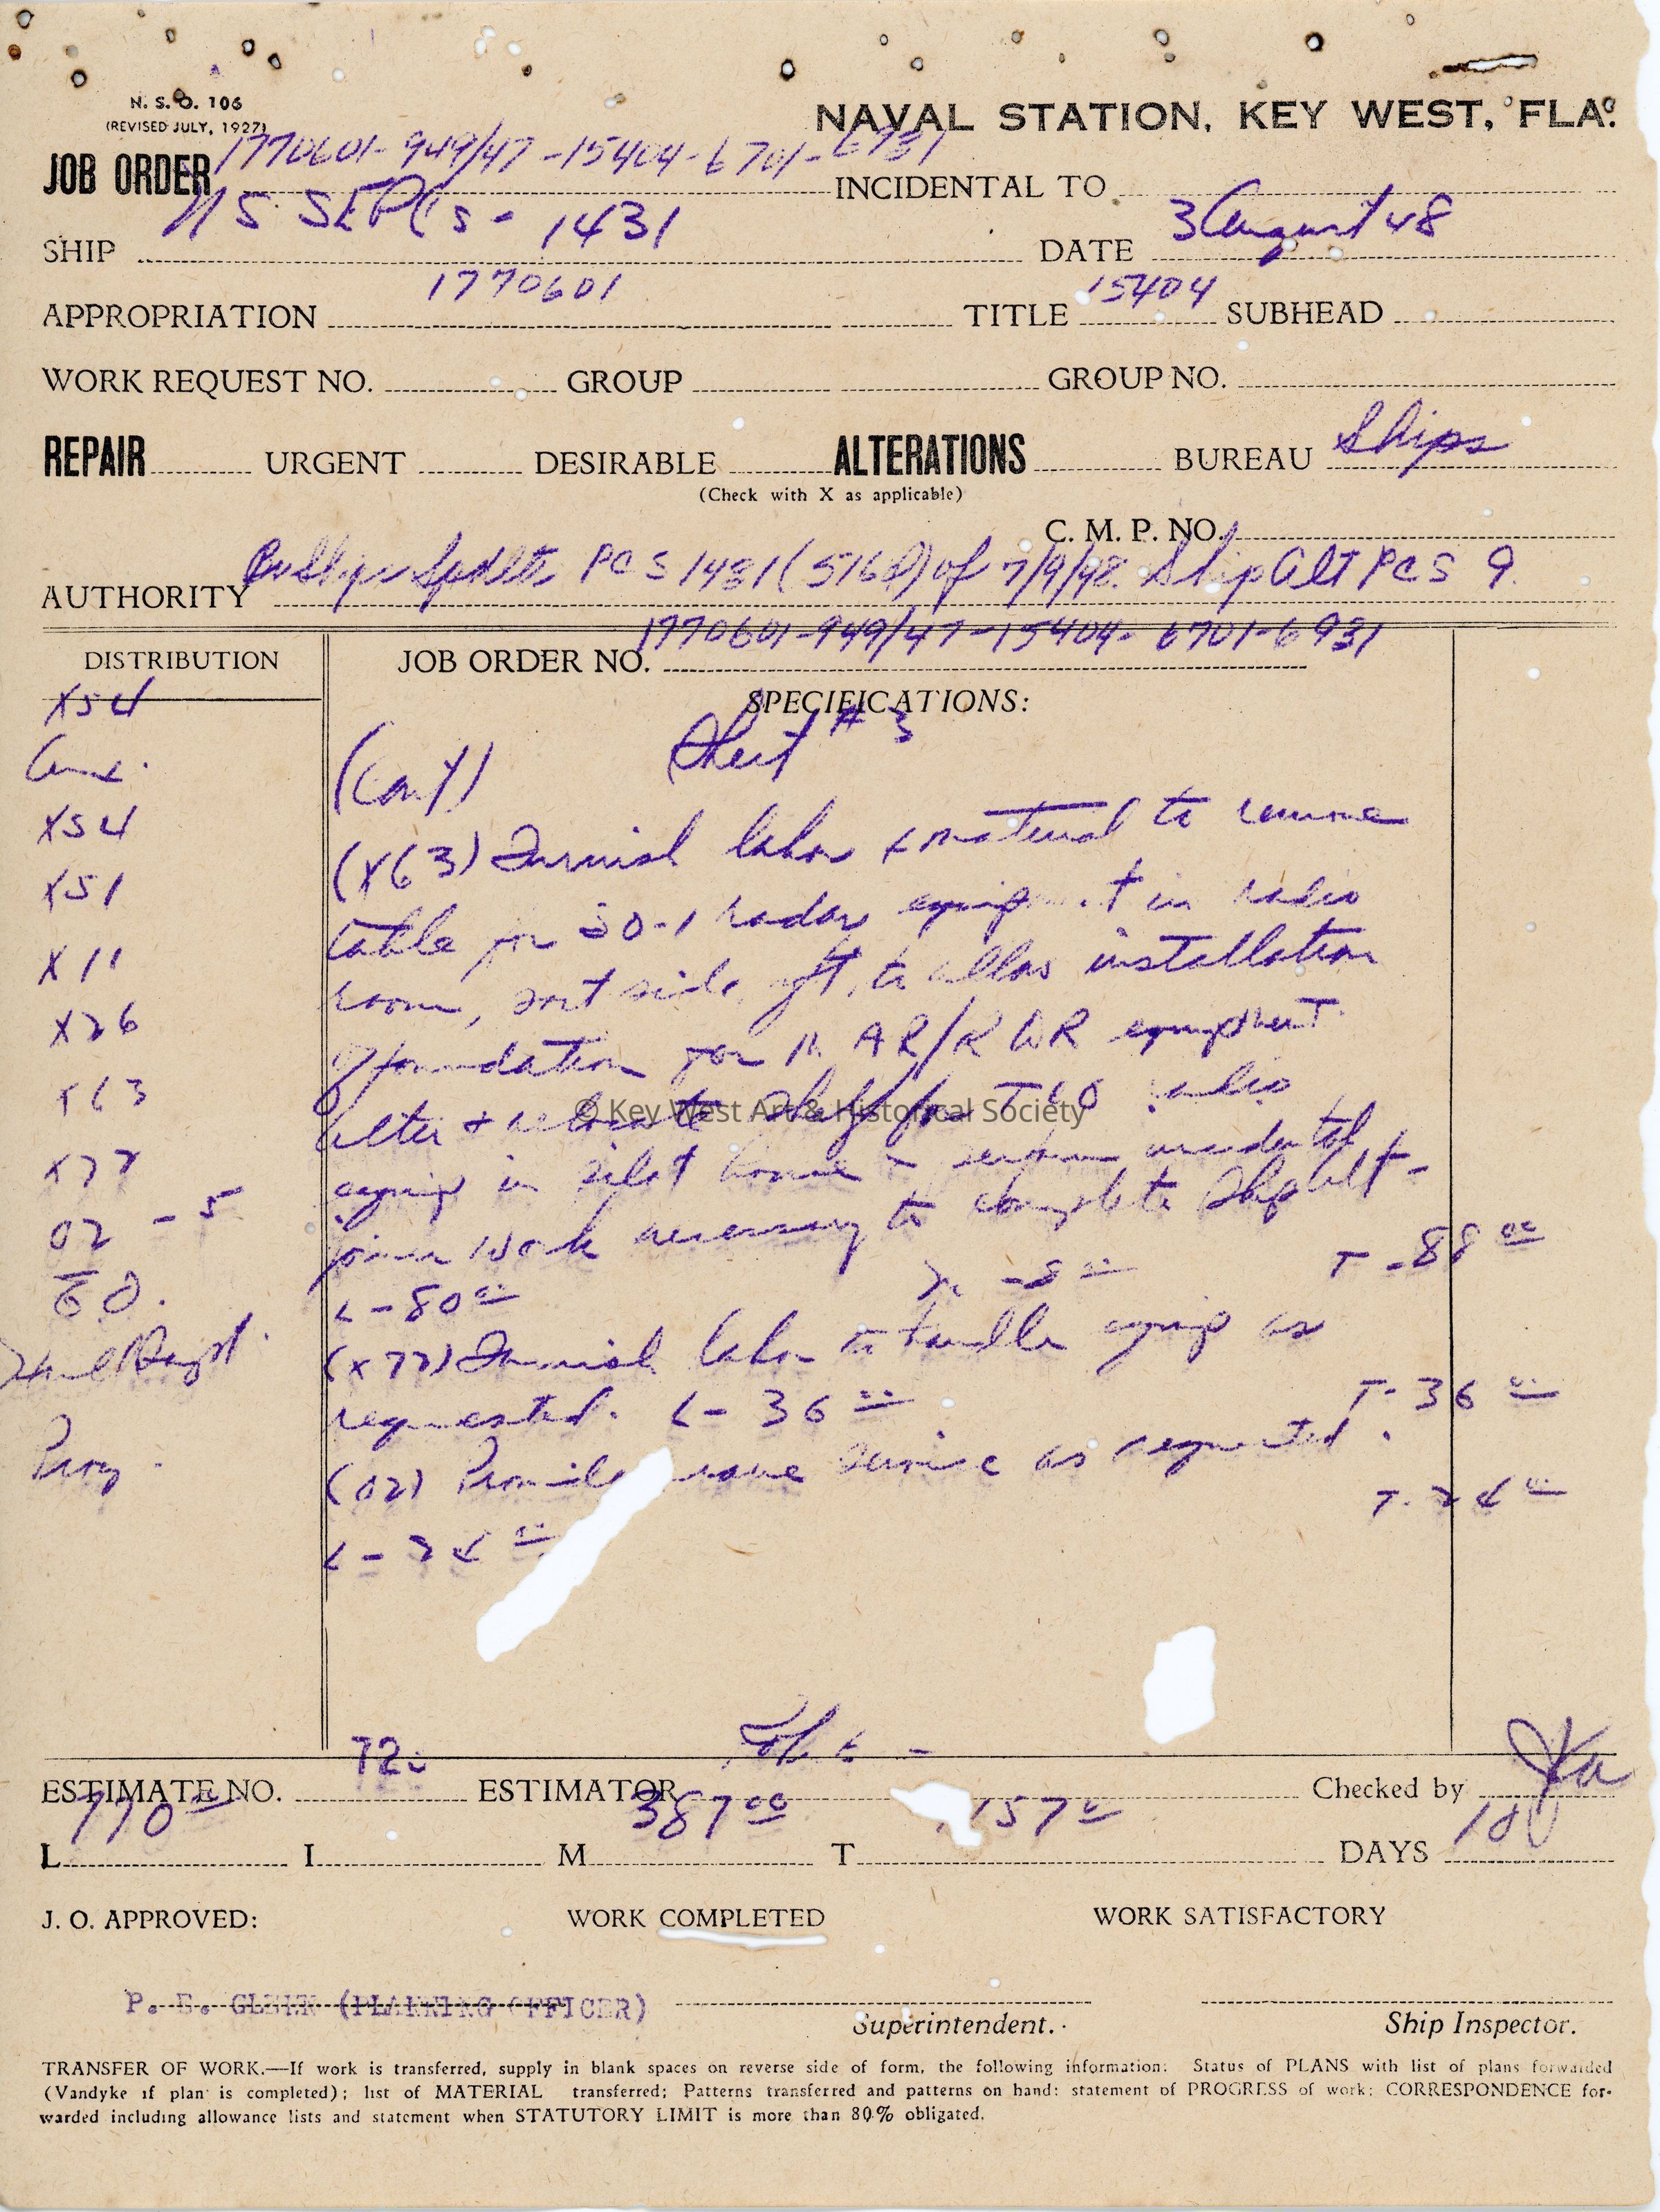 N. S. O. 106
(REVISED JULY, 1927)
NAVAL STATION, KEY WEST, FLA.
JOB ORDER 1770601-949/47-15404-6701-6931 INCIDENTAL TO
SHIP PCS-1431 DATE 3 August 48
APPROPRIATION 1770601 TITLE 15404 SUBHEAD
WORK REQUEST NO. GROUP GROUP NO.
REPAIR URGENT DESIRABLE ALTERATIONS BUREAU Ships
(Check with X as applicable)
C. M. P. NO.
AUTHORITY BuShips Spdltr PCS 1431 (516) of 7/9/48. ShipAlt PCS 9.
DISTRIBUTION
JOB ORDER NO. 1770601-949/47-15404-6701-6931
SPECIFICATIONS:
X54
X54
X51
X11
X26
X63
X77
02 - 5
Sheet #3
(Con't)
(X63) Furnish labor & material to remove
table for SO-1 radar equipment in radio
room, port side, aft, to allow installation
of foundation for equipment.
Alter & relocate shelf for radio
equip in pilot house & perform incidental
joiner work necessary to complete ShipAlt-
L - 80 00 M - 8 00 T - 88 00
(X77) Furnish labor to handle equip as
requested. L - 36 00 T - 36 00
(02) Provide crane service as requested.
L - 24 00 T - 24 00
© Key West Art & Historical Society
ESTIMATE NO. 72 ESTIMATOR Checked by
L 770 00 I M 387 00 T 157 DAYS
J. O. APPROVED: WORK COMPLETED WORK SATISFACTORY
P. E. (PLANNING OFFICER)
Superintendent. Ship Inspector.
TRANSFER OF WORK.—If work is transferred, supply in blank spaces on reverse side of form, the following information: Status of PLANS with list of plans forwarded
(Vandyke if plan is completed); list of MATERIAL transferred; Patterns transferred and patterns on hand: statement of PROGRESS of work; CORRESPONDENCE for-
warded including allowance lists and statement when STATUTORY LIMIT is more than 80% obligated.